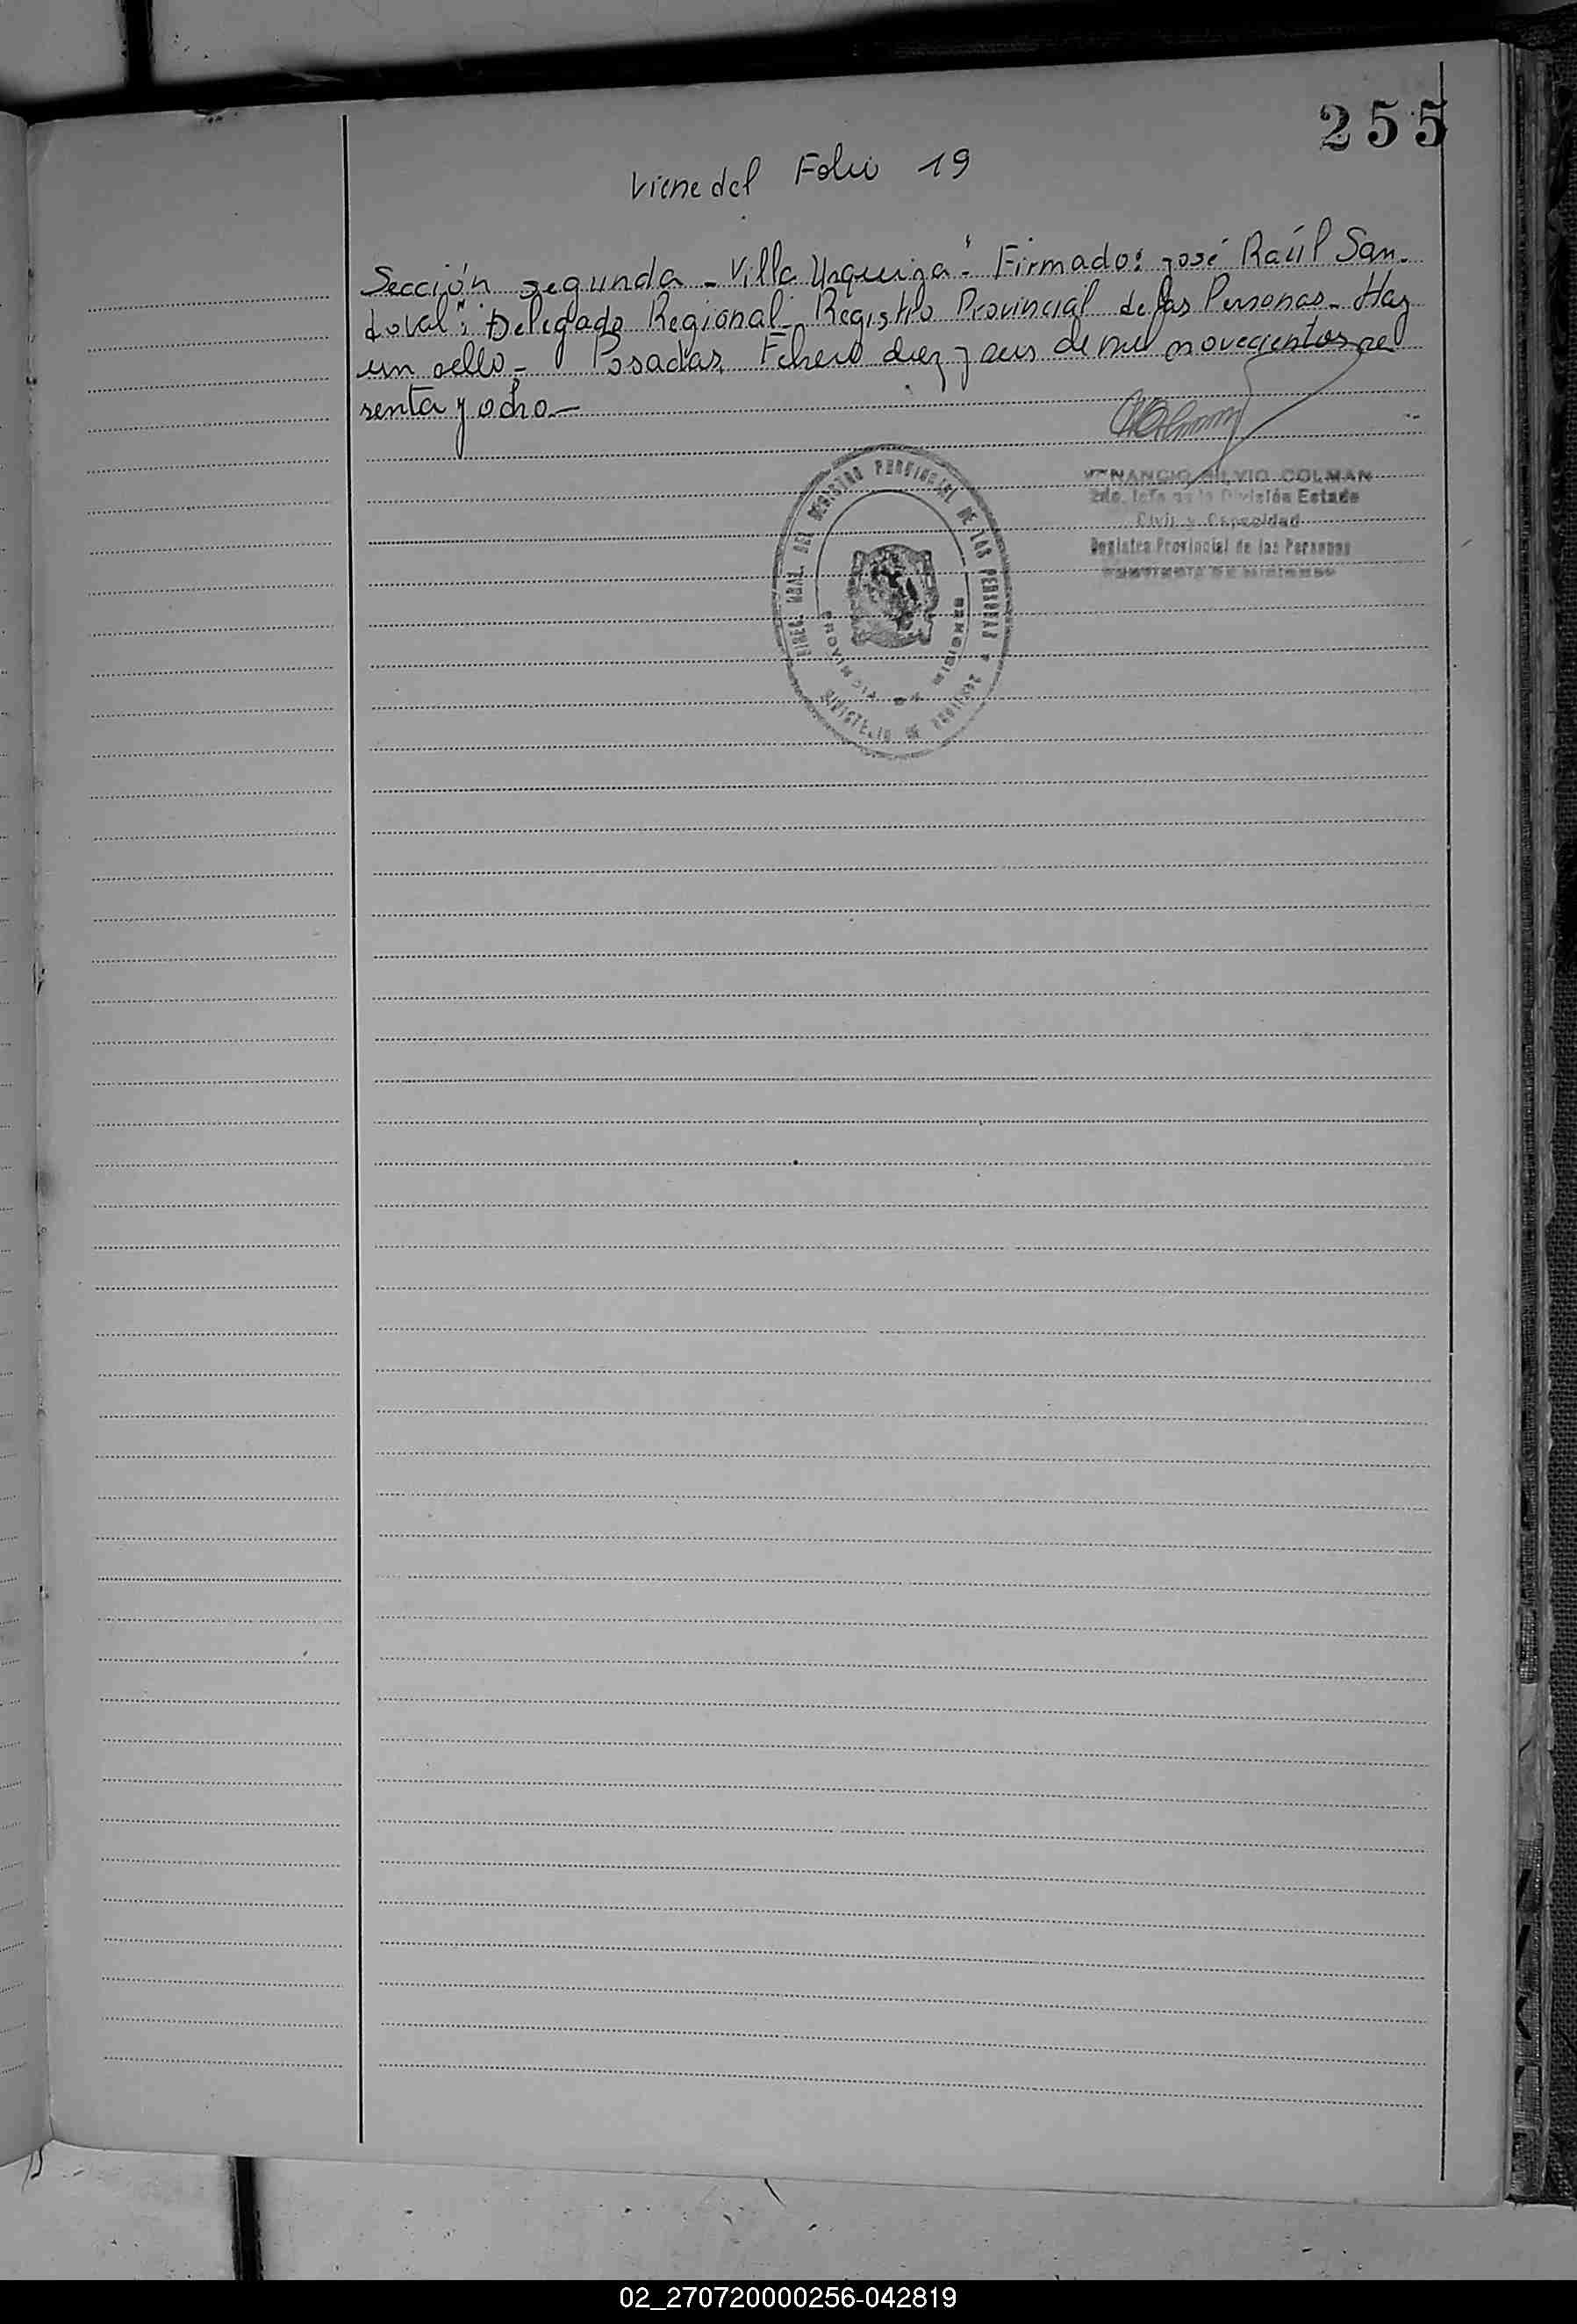 255
Viene del Folio 19
Sección segunda - Villa Urquiza". Firmado: José Raúl San-
doval". Delegado Regional - Registro Provincial de las Personas - Hay
un sello - Posadas, Febrero diez y seis de mil novecientos se
senta y ocho -
VENANCIO SILVIO COLMAN
2do. Jefe de la División Estado
Civil y Capacidad
Registro Provincial de las Personas
PROVINCIA DE MISIONES
DIREC. GRAL. DEL REGISTRO PROVINCIAL DE LAS PERSONAS
PROVINCIA DE MISIONES
MINISTERIO DE
02_270720000256-042819